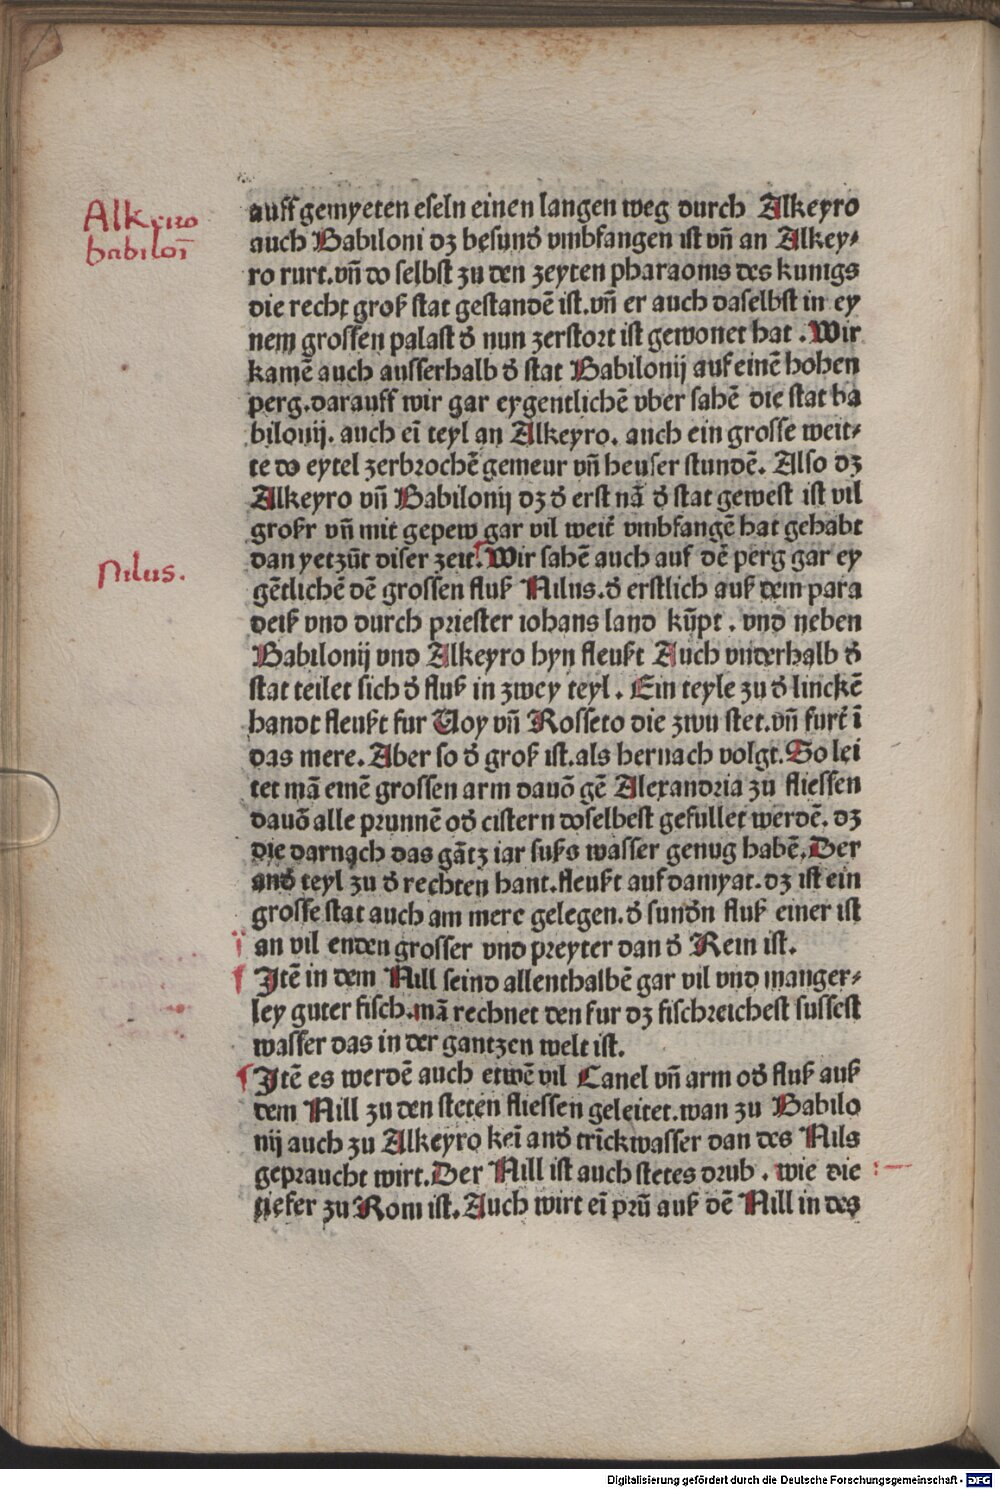 Alkeyro
babiloī
auff gemyeten eseln einen langen weg durch Alkeyro
auch Babiloni dʒ besund̕ vmbfangen ist vn̄ an Alkey⸗
ro rurt. vn̄ do selbst zu den zeyten pharaonis des kunigs
die recht groß stat gestandē ist. vn̄ er auch daselbst in ey
nem grossen palast d̕ nun zerstort ist gewonet hat. Wir
kamē auch ausserhalb d̕ stat Babilonij auf einē hohen
perg. darauff wir gar eygentlichē vber sahē die stat ba
bilonij. auch eī teyl an Alkeyro. auch ein grosse weit⸗
te do eytel zerbrochē gemeur vn̄ heuser stundē. Also dʒ
Alkeyro vn̄ Babilonij dʒ d̕ erst nā d̕ stat gewest ist vil
großr vn̄ mit gepew gar vil weit̕ vmbfangē hat gehabt
dan yetzūt diser zeit. Wir sahē auch auf dē perg gar ey
Nilus.
gētlichē dē grossen fluß Nilus. d̕ erstlich auß dem para
deiß vnd durch priester iohans land kūpt. vnd neben
Babilonij vnd Alkeyro hyn fleußt Auch vnderhalb d̕
stat teilet sich d̕ fluß in zwey teyl. Ein teyle zu d̕ linckē
handt fleußt fur Uoy vn̄ Rosseto die zwu stet. vn̄ furt̕ ī
das mere. Aber so d̕ groß ist. als hernach volgt. So lei
tet mā einē grossen arm dauō gē Alexandria zu fliessen
dauō alle prunnē od̕ cistern doselbest gefullet werdē. dʒ
die darnach das gātz iar suß wasser genug habē. Der
and̕ teyl zu d̕ rechten hant. fleußt auf damyat. dʒ ist ein
grosse stat auch am mere gelegen. d̕ sund̕n fluß einer ist
an vil enden grosser vnd preyter dan d̕ Rein ist.
Itē in dem Nill seind allenthalbē gar vil vnd manger⸗
ley guter fisch. mā rechnet den fur dʒ fischreichest sussest
wasser das in der gantzen welt ist.
Itē es werdē auch etwē vil Canel vn̄ arm od̕ fluß auß
dem Nill zu den steten fliessen geleitet. wan zu Babilo
nij auch zu Alkeyro keī and̕ trīckwasser dan des Nils
gepraucht wirt. Der Nill ist auch stetes drub. wie die
tiefer zu Rom ist. Auch wirt eī prū auß dē Nill in des
Digitalisierung gefördert durch die Deutsche Forschungsgemeinschaft - DFG